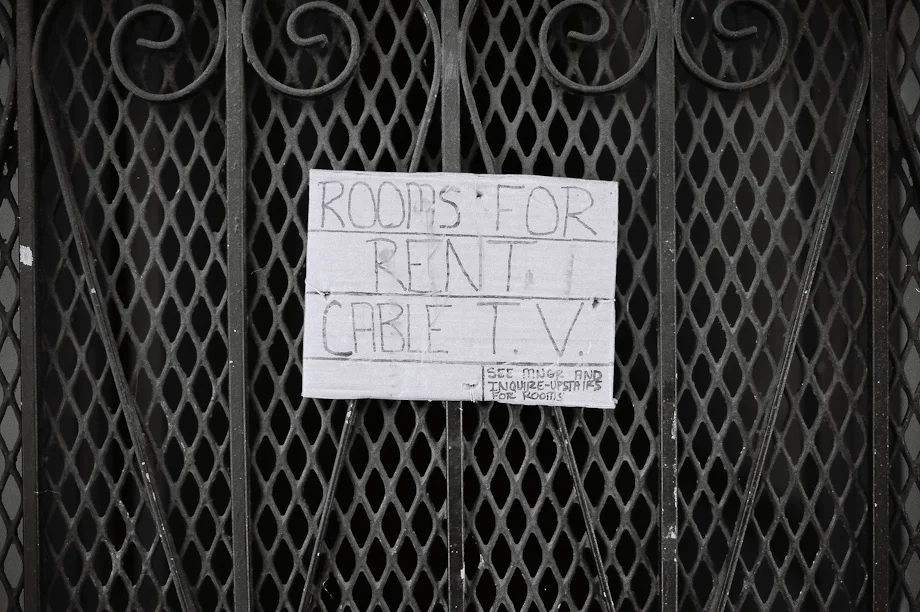 ROOMS FOR
RENT
CABLE T.V.
SEE MNGR AND
INQUIRE-UPSTAIRS
FOR ROOMS